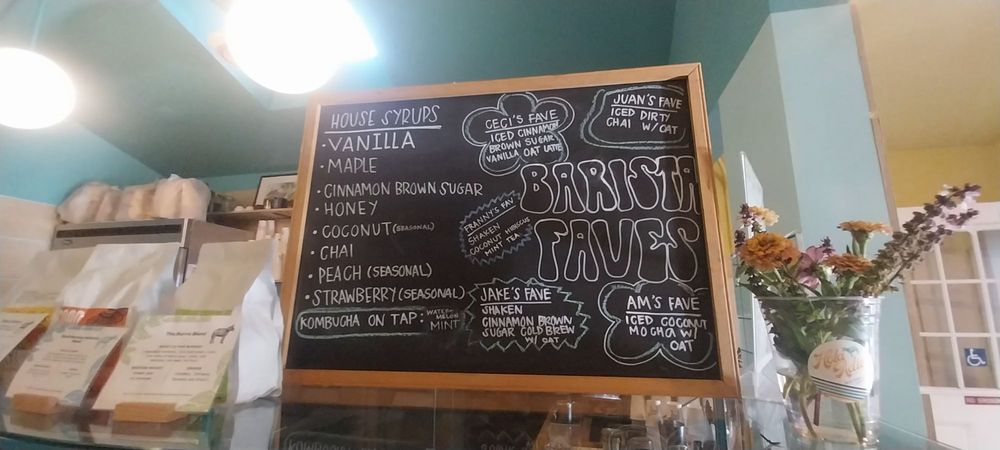 HOUSE SYRUPS
• VANILLA
• MAPLE
• CINNAMON BROWN SUGAR
• HONEY
• COCONUT (SEASONAL)
• CHAI
• PEACH (SEASONAL)
• STRAWBERRY (SEASONAL)
KOMBUCHA ON TAP: WATER-
MELON
MINT
CECI'S FAVE
ICED CINNAMON
BROWN SUGAR
VANILLA OAT LATTE
JUAN'S FAVE
ICED DIRTY
CHAI W/ OAT
BARISTA
FAVES
FRANNY'S FAV
SHAKEN
COCONUT HIBISCUS
MINT TEA
JAKE'S FAVE
SHAKEN
CINNAMON BROWN
SUGAR COLD BREW
W/ OAT
AM'S FAVE
ICED COCONUT
MOCHA W/
OAT